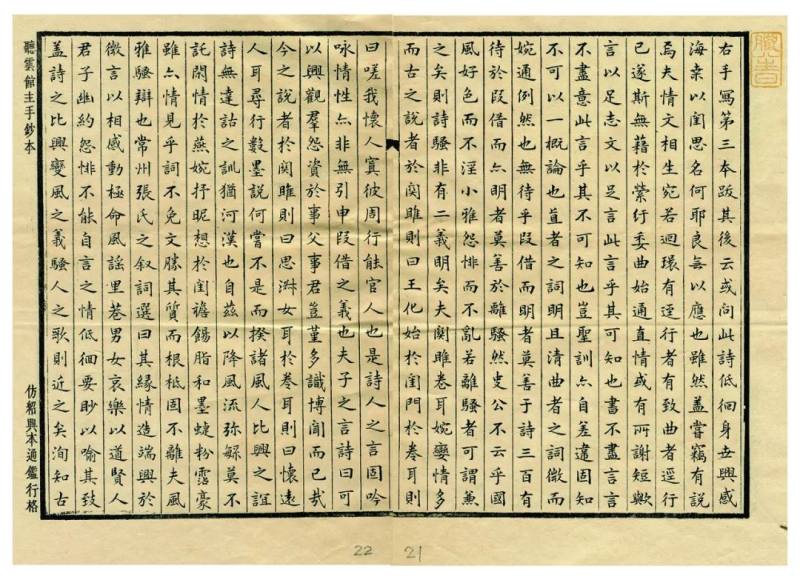 右手寫第三本跋其後云或問此詩低徊身世興感
海桒以閨思名何耶良無以應也雖然蓋嘗竊有說
焉夫情文相生宛若迴環有逕行者有致曲者逕行
已遂斯無藉於縈紆委曲始通直情或有所謝短歟
言以足志文以足言此言乎其可知也書不盡言言
不盡意此言乎其不可知也豈聖訓亦自差違固知
不可以一概論也直者之詞明且清曲者之詞微而
婉通例然也無待乎叚借而明者莫善于詩三百有
待於叚借而亦明者莫善於離騷然史公不云乎國
風好色而不淫小雅怨悱而不亂若離騷者可謂兼
之矣則詩騷非有二義明矣夫關雎卷耳婉孌情多
而古之說者於關雎則曰王化始於閨門於卷耳則
曰嗟我懷人寘彼周行能官人也是詩人之言固吟
咏情性亦非無引申叚借之義也夫子之言詩曰可
以興觀羣怨資於事父事君豈堇多識博聞而已哉
今之說者於關雎則曰思淑女耳於卷耳則曰懷遠
人耳尋行數墨說何嘗不是而揆諸風人比興之誼
詩無達詁之訓猶河漢也自茲以降風流弥緜莫不
託閑情於燕婉抒昵想於閨襜脂和墨蜨粉霑豪
雖亦情見乎詞不免文勝其質而根柢固不離夫風
雅騷辯也常州張氏之叙詞選曰其緣情造端興於
微言以相感動極命風謠里巷男女哀樂以道賢人
君子幽約怨悱不能自言之情低徊要眇以喻其致
蓋詩之比興變風之義騷人之歌則近之矣洵知古
聽雲館主手鈔本
仿紹興本通鑑行格
22
21